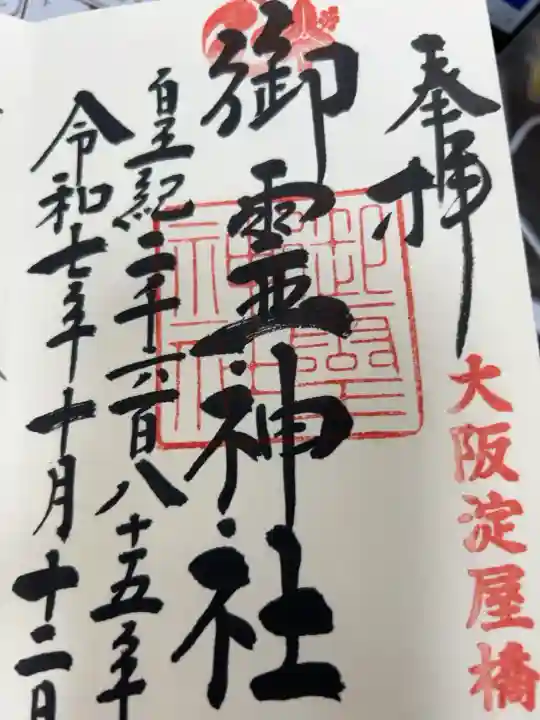 奉拝
大阪淀屋橋
御霊神社
皇紀二千六百八十五年
令和七年十月十二日